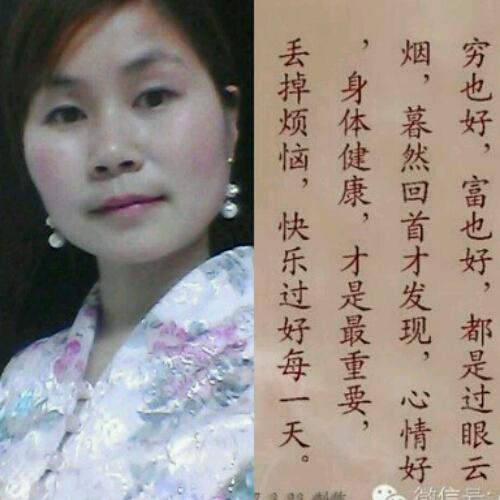 穷也好，富也好，都是过眼云
烟，暮然回首才发现，心情好
，身体健康，才是最重要，
丢掉烦恼，快乐过好每一天。
微信号: